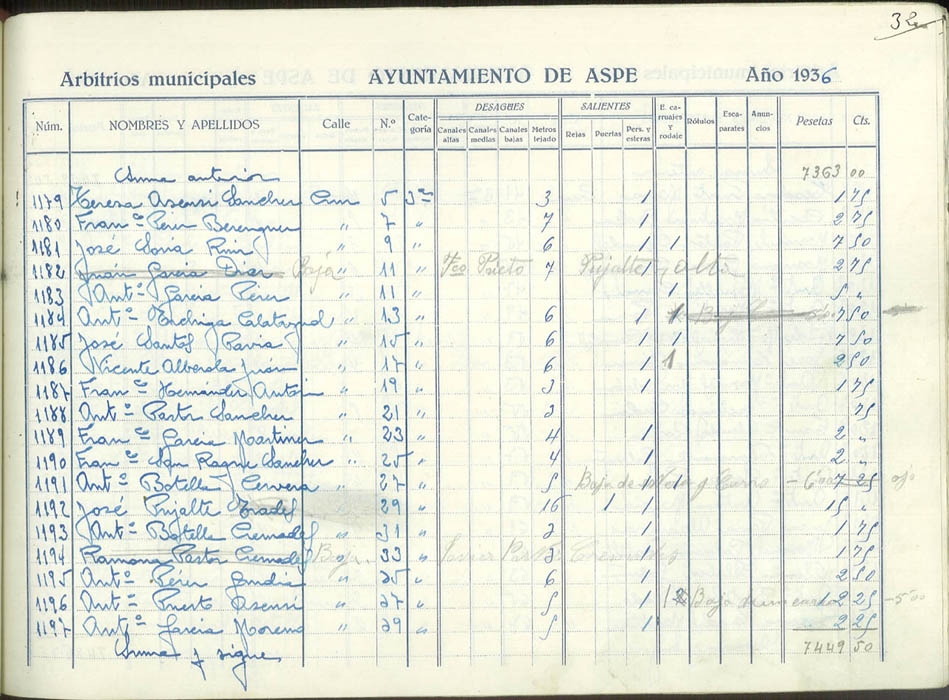 32
Arbitrios municipales AYUNTAMIENTO DE ASPE Año 1936
Núm. NOMBRES Y APELLIDOS Calle N.º Categoría DESAGUES Canales altas Canales medias Canales bajas Metros tejado SALIENTES Rejas Puertas Pers. y esteras E. carruajes y rodaje Rótulos Escaparates Anuncios Pesetas Cts.
Suma anterior 7363 00
1179 Teresa Asensi Sancher 5 3ª 3 1 1 75
1180 Franᶜᵒ Perer Berenguer " 7 " 7 1 2 75
1181 José Soria " 9 " 6 1 1 7 50
1182 Juán Garcia Diar Baja " 11 " Fco Prieto 7 Pujalte 1 alta 2 75
1183 Antº Garcia Perer " 11 " 1 5 "
1184 Antº Calatayud " 13 " 6 1 1 7 50
1185 José Santos Pavia " 15 " 6 1 1 7 50
1186 Vicente Alberola " 17 " 6 1 1 2 50
1187 Franᶜᵒ Hernánder Antón " 19 " 3 1 1 75
1188 Antº Pastor Sancher " 21 " 3 75
1189 Franᶜᵒ Garcia Martiner " 23 " 4 1 2 "
1190 Franᶜᵒ Sancher " 25 " 4 1 2 "
1191 Antº Botella Cervera " 27 " 5 Baja de y Carro 1 1 7 25
1192 José Pujalte " 29 " 16 1 1 15 "
1193 Antº Botella Cremades " 31 " 3 1 1 75
1194 Ramona Pastor Cremades Baja " 33 " 3 1 1 75
1195 Antº Perer " 35 " 6 1 2 50
1196 Antº Puerto Asensi " 37 " 5 1 1 2 Baja de un carro 12 25 - 5 00
1197 Antº Garcia Moreno " 39 " 5 1 2 25
Suma y sigue 7449 50